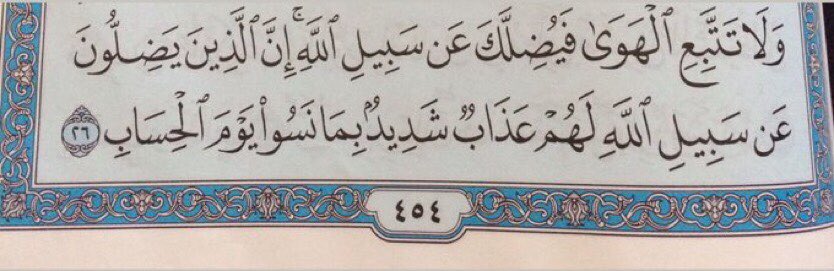 وَلَا تَتَّبِعِ ٱلْهَوَىٰ فَيُضِلَّكَ عَن سَبِيلِ ٱللَّهِۚ إِنَّ ٱلَّذِينَ يَضِلُّونَ
عَن سَبِيلِ ٱللَّهِ لَهُمْ عَذَابٌ شَدِيدٌۢ بِمَا نَسُوا۟ يَوْمَ ٱلْحِسَابِ ٢٦
٤٥٤